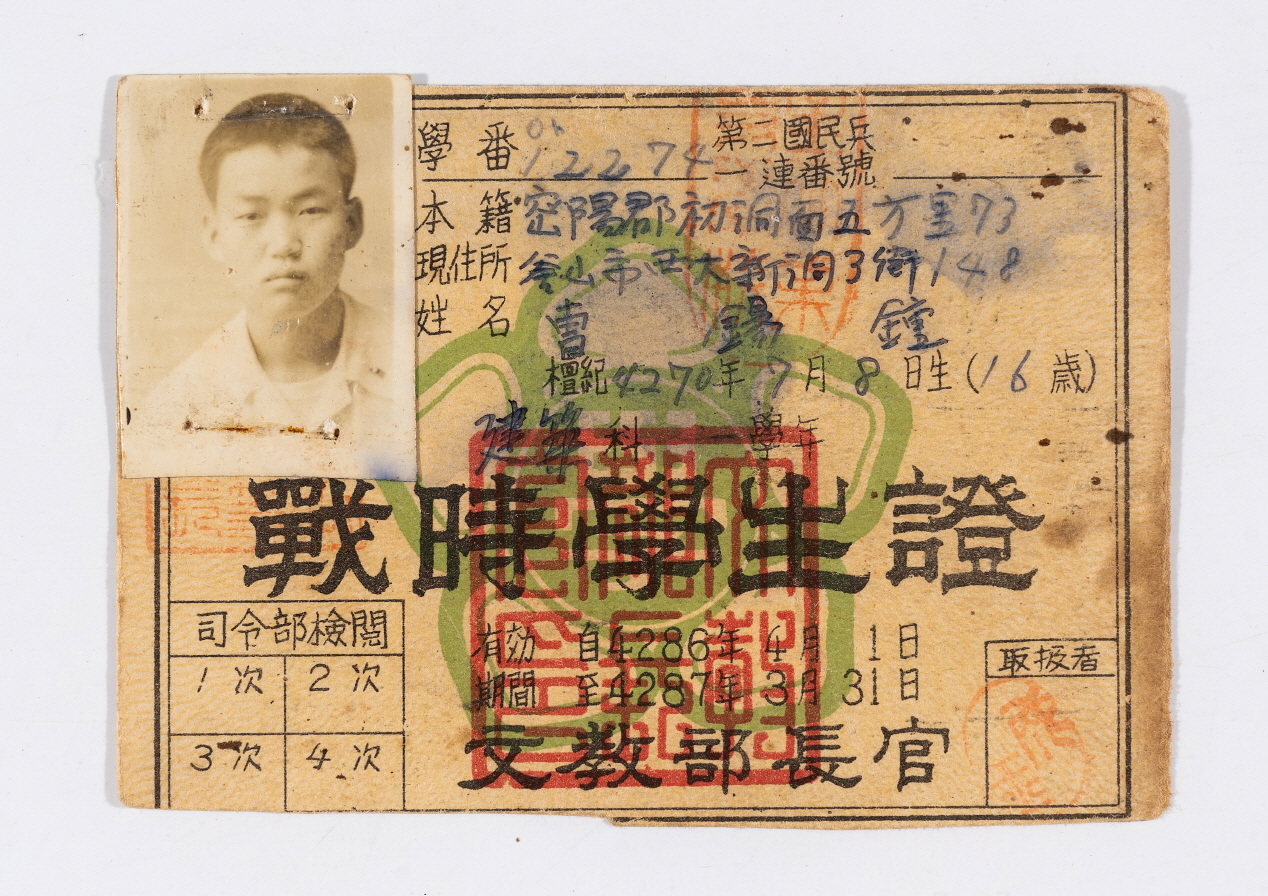 學番 122274 第二國民兵
一連番號
本籍 密陽郡初洞面五方里73
現住所 釜山市西大新洞3街148
姓名 曺 錫 鐘
檀紀4270年7月8日生(16歳)
建築科 一學年
戰時學生證
司令部檢閲
1次 2次
3次 4次
有効 自4286年4月1日
期間 至4287年3月31日
取扱者
文教部長官